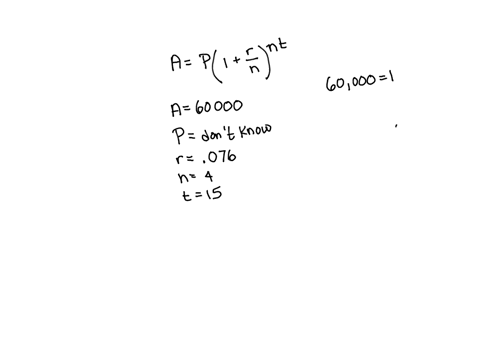 A = P(1 + r/n)^nt
60,000 = 1
A = 60000
P = don't know
r = .076
n = 4
t = 15